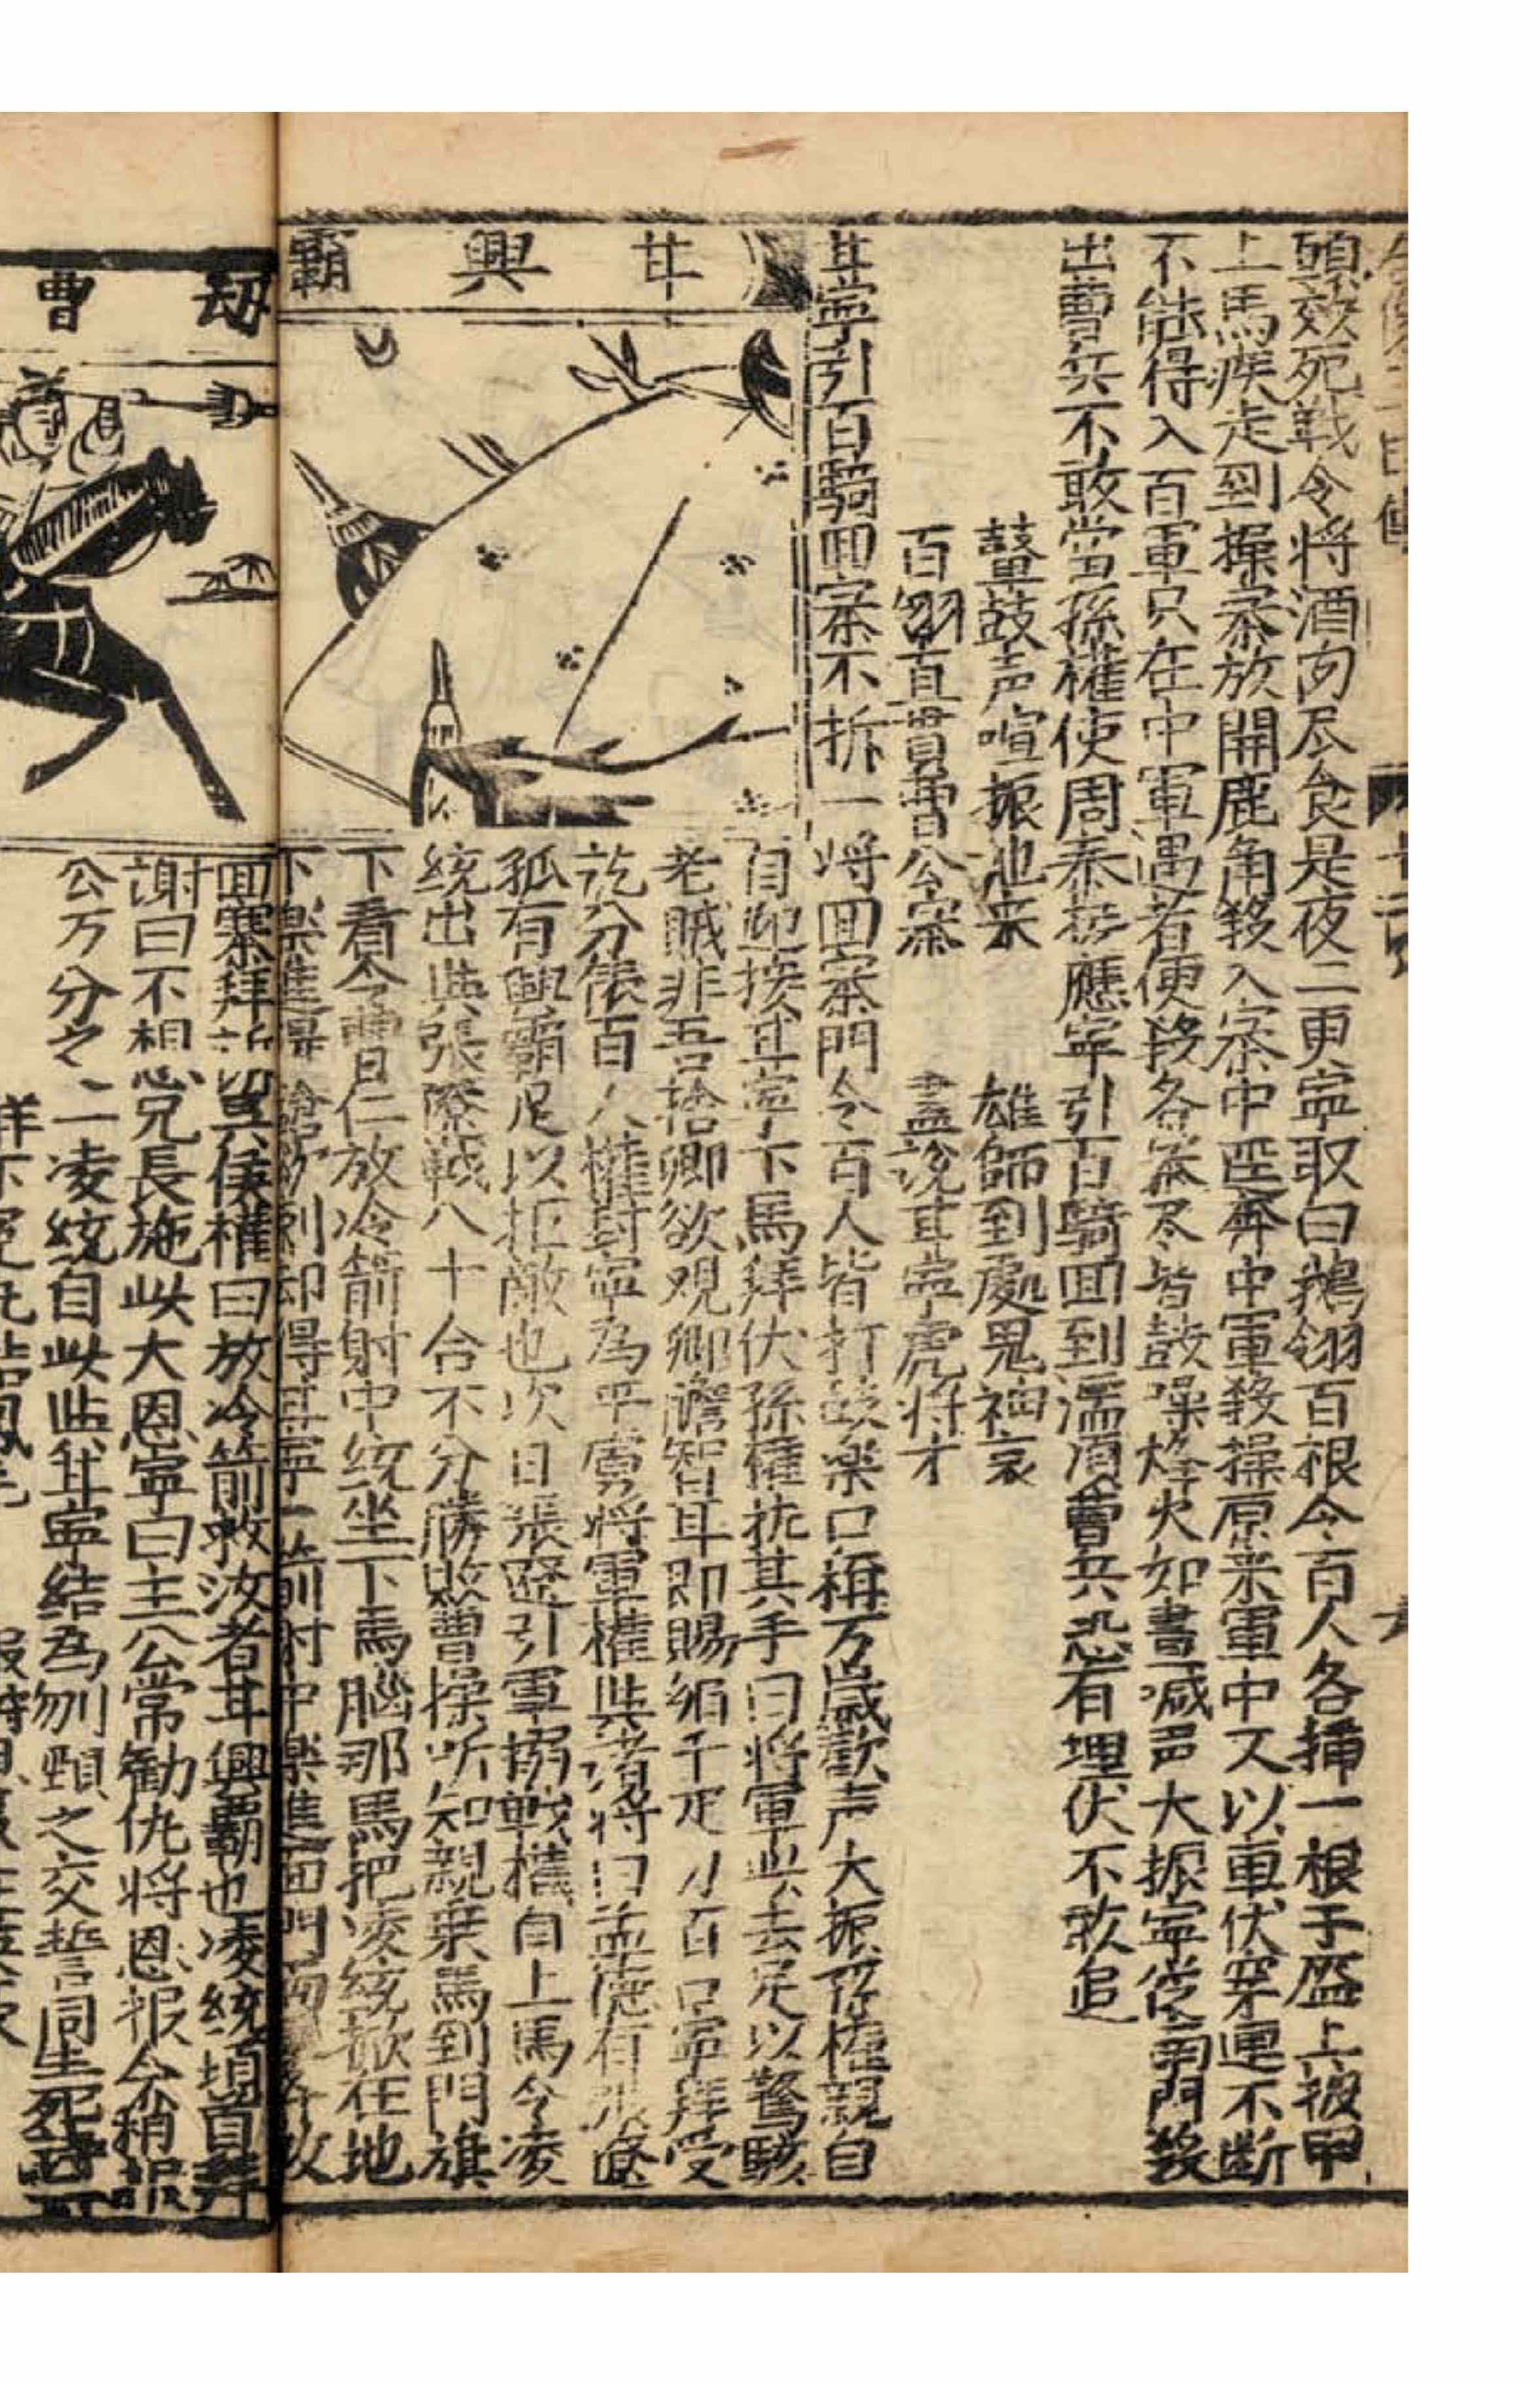 頭效死戰令將酒肉尽食是夜二更寧取白鵝翎百根令百人各揷一根于盔上披甲
上馬疾走到操寨放開鹿角殺入寨中逕奔中軍殺操原來軍中又以車伏穿連不断
不能得入百軍只在中軍遇着便殺各寨尽皆鼓噪烽火如晝喊声大振寧從南門殺
出曹兵不敢當孫權使周泰接應寧引百騎囬到濡湏曹兵恐有埋伏不敢追
鼙鼓声喧振地来 雄師到處鬼神哀
百翎直貫曹公寨 盡說甘寧虎將才
甘寧引百騎囬寨不折一將囬寨門令百人皆打鼓樂口稱万歲歡声大振孫權親自
甘興霸
自迎接甘寧下馬拜伏孫權抚其手曰將軍此去足以驚駭
老賊非吾捨卿欲观卿膽智耳即賜絹千疋刀百口寧拜受
訖分俵百人權封寧為平虜將軍權與諸将曰孟德有張遼
孤有興霸足以拒敵也次日張遼引軍搦戰權自上馬令凌
統出與張遼戦八十合不分勝敗曹操听知親乗馬到門旗
下看令曹仁放冷箭射中統坐下馬腦那馬把凌統掀在地
下樂進提鎗欲刺却得甘寧一箭射中樂進面門兩
劫曹
囬寨拜謝吳侯權曰放冷箭救汝者甘興覇也凌統頓首拜
謝曰不想兄長施此大恩寧曰主公常勸仇將恩報今稍報
公万分之一凌統自此與甘寧結為刎頸之交誓同生死